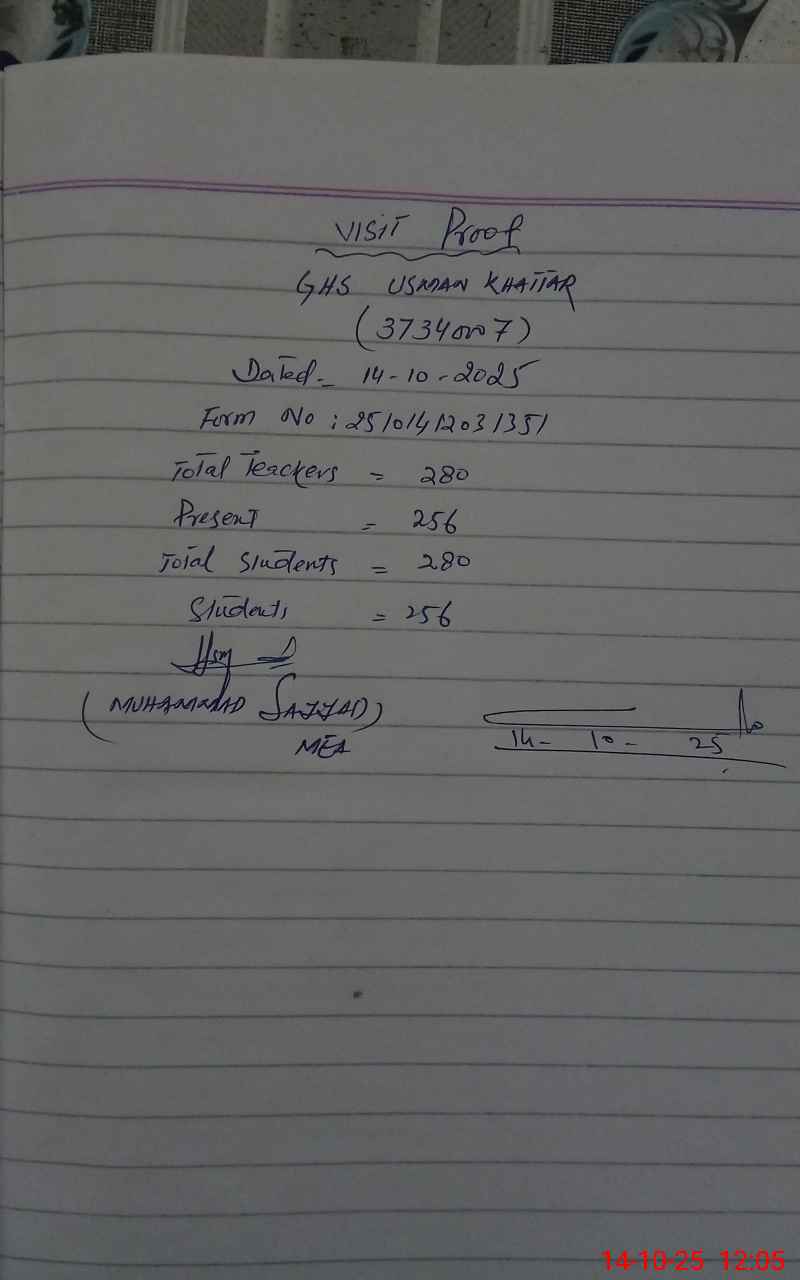 VISIT Proof
GHS USMAN KHATTAR
(37340007)
Dated- 14-10-2025
Form No : 25101412031351
Total Teackers = 280
Present = 256
Total Students = 280
Students = 256
(MUHAMMAD SAJJAD)
MEA
14- 10- 25
14-10-25 12:05